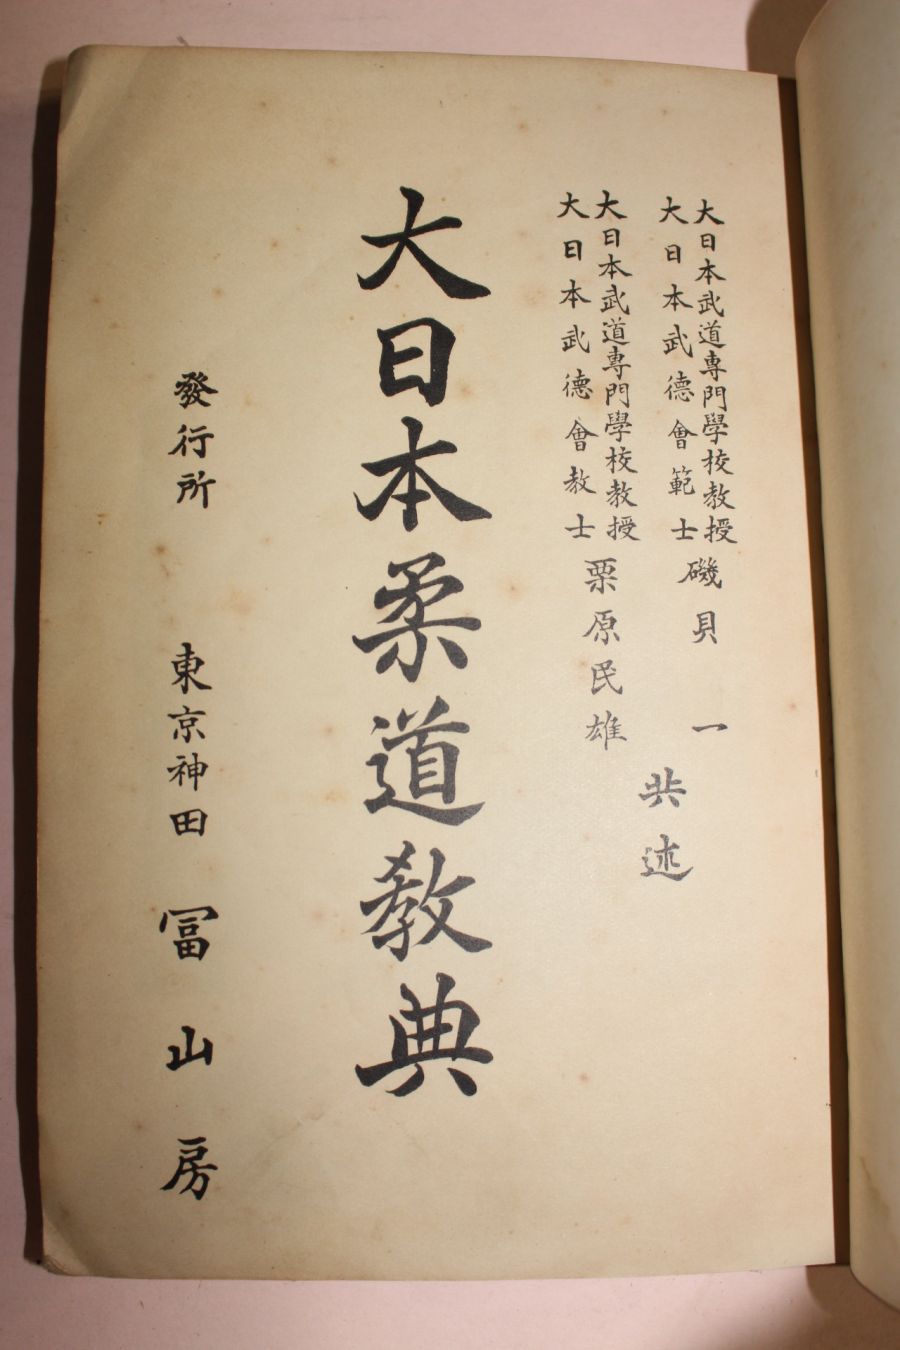 大日本武道專門學校教授
大日本武德會範士
磯貝一
大日本武道專門學校教授
大日本武德會教士
栗原民雄
共述
大日本柔道教典
發行所 東京神田 冨山房